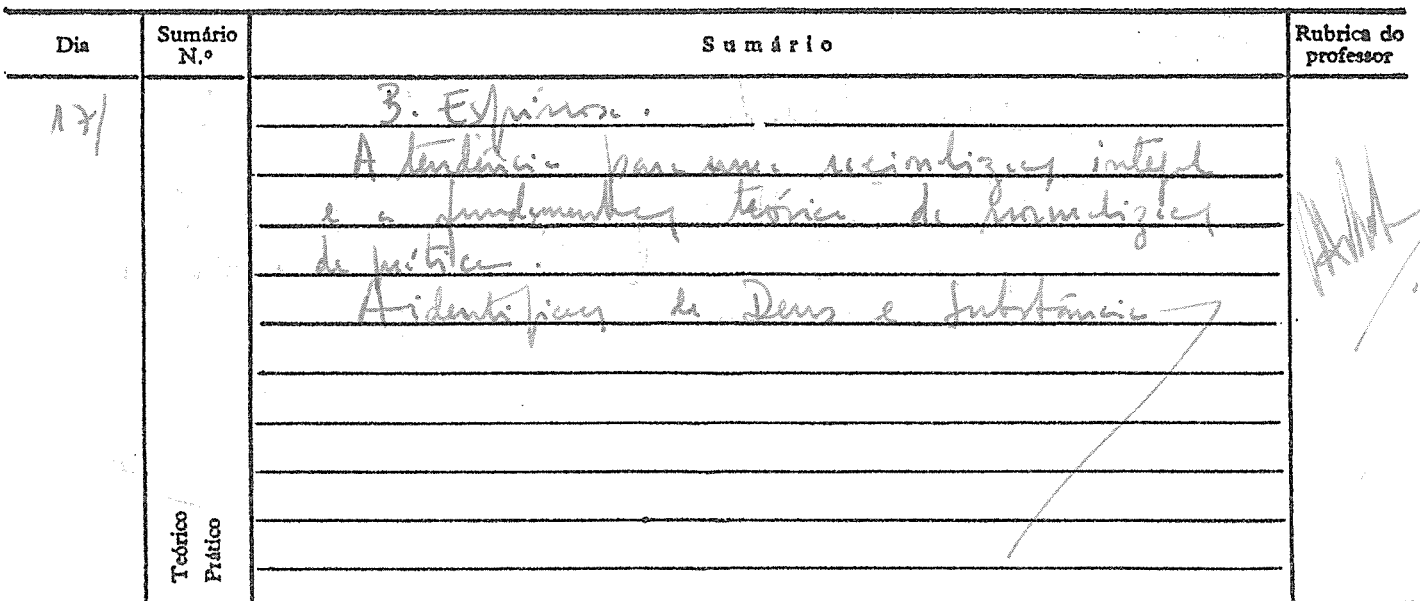 Dia
Sumário N.º
Sumário
Rubrica do professor
17/
B. Espinosa.
A tendência para uma racionalização integral
e a fundamentação teórica da normalização
da prática.
A identificação de Deus e Substância
Teórico
Prático